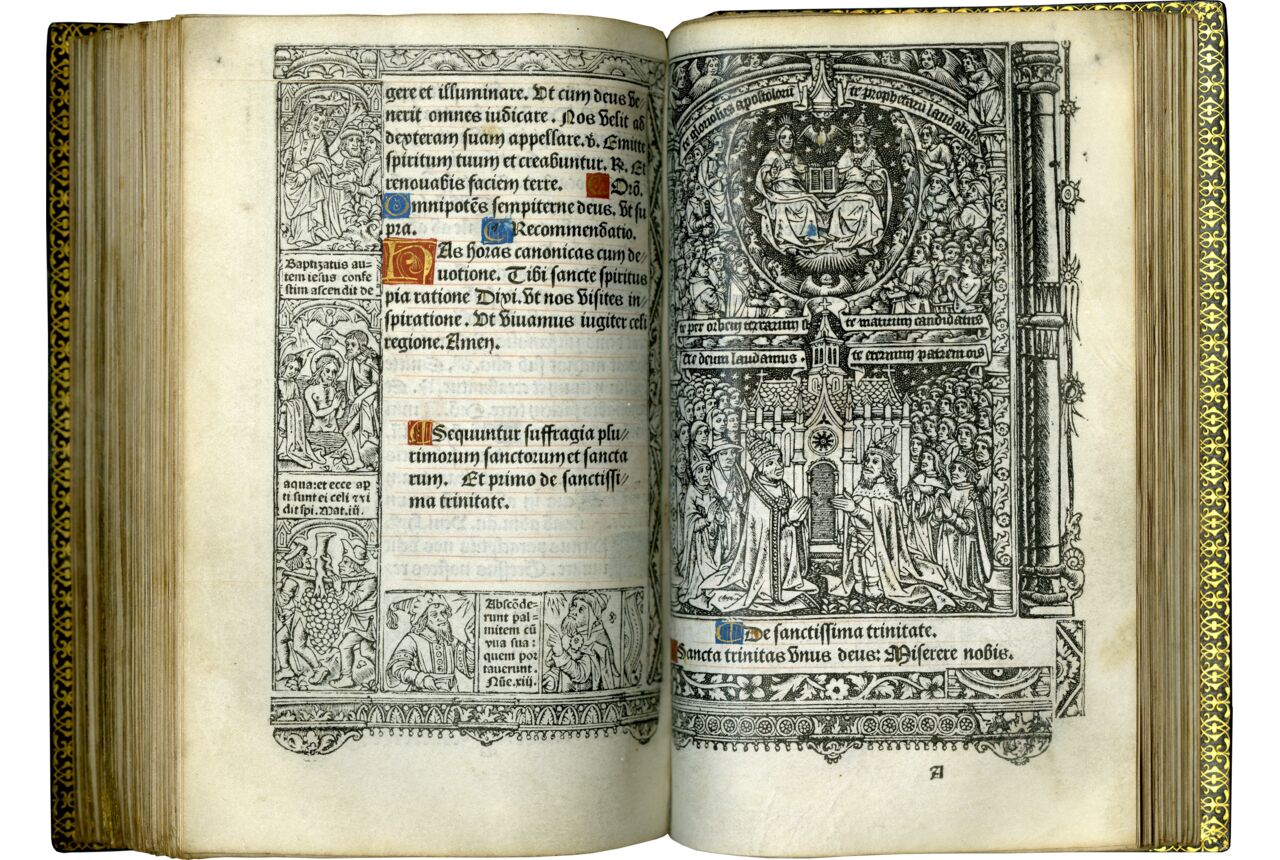 gere et illuminare. Vt cum deus ve-
nerit omnes iudicare. Nos velit ad
dexteram suam appellare. v. Emitte
spiritum tuum et creabuntur. R. Et
renovabis faciem terre. Orō.
Omnipotēs sempiterne deus. Vt su
pra. Recommendatio.
HAs horas canonicas cum de-
uotione. Tibi sancte spiritus
pia ratione Dixi. Vt nos visites in-
spiratione. Vt vivamus iugiter celi
regione. Amen.
Sequuntur suffragia plu//
rimorum sanctorum et sancta
rum. Et primo de sanctissi//
ma trinitate.
Baptizatus au-
tem iesus confe
stim ascendit de
aqua: et ecce ap
ti sunt ei celi et vi
dit spi. Mat. iii.
Abscōde-
runt pal-
mitem cū
vua sua:
quem por
taverunt.
Nūe. xiii.
te gloriosus apostolorū te prophetarū laudabil
te per orbem terrarum s te martirum candidatus
Te deum laudamus te eternum patrem ois
De sanctissima trinitate.
Sancta trinitas vnus deus: Miserere nobis.
A